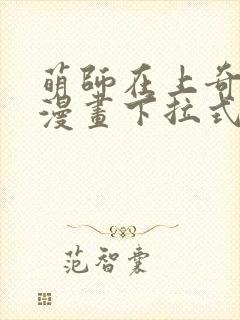 萌師在上奇
漫畫下拉式
范智囊